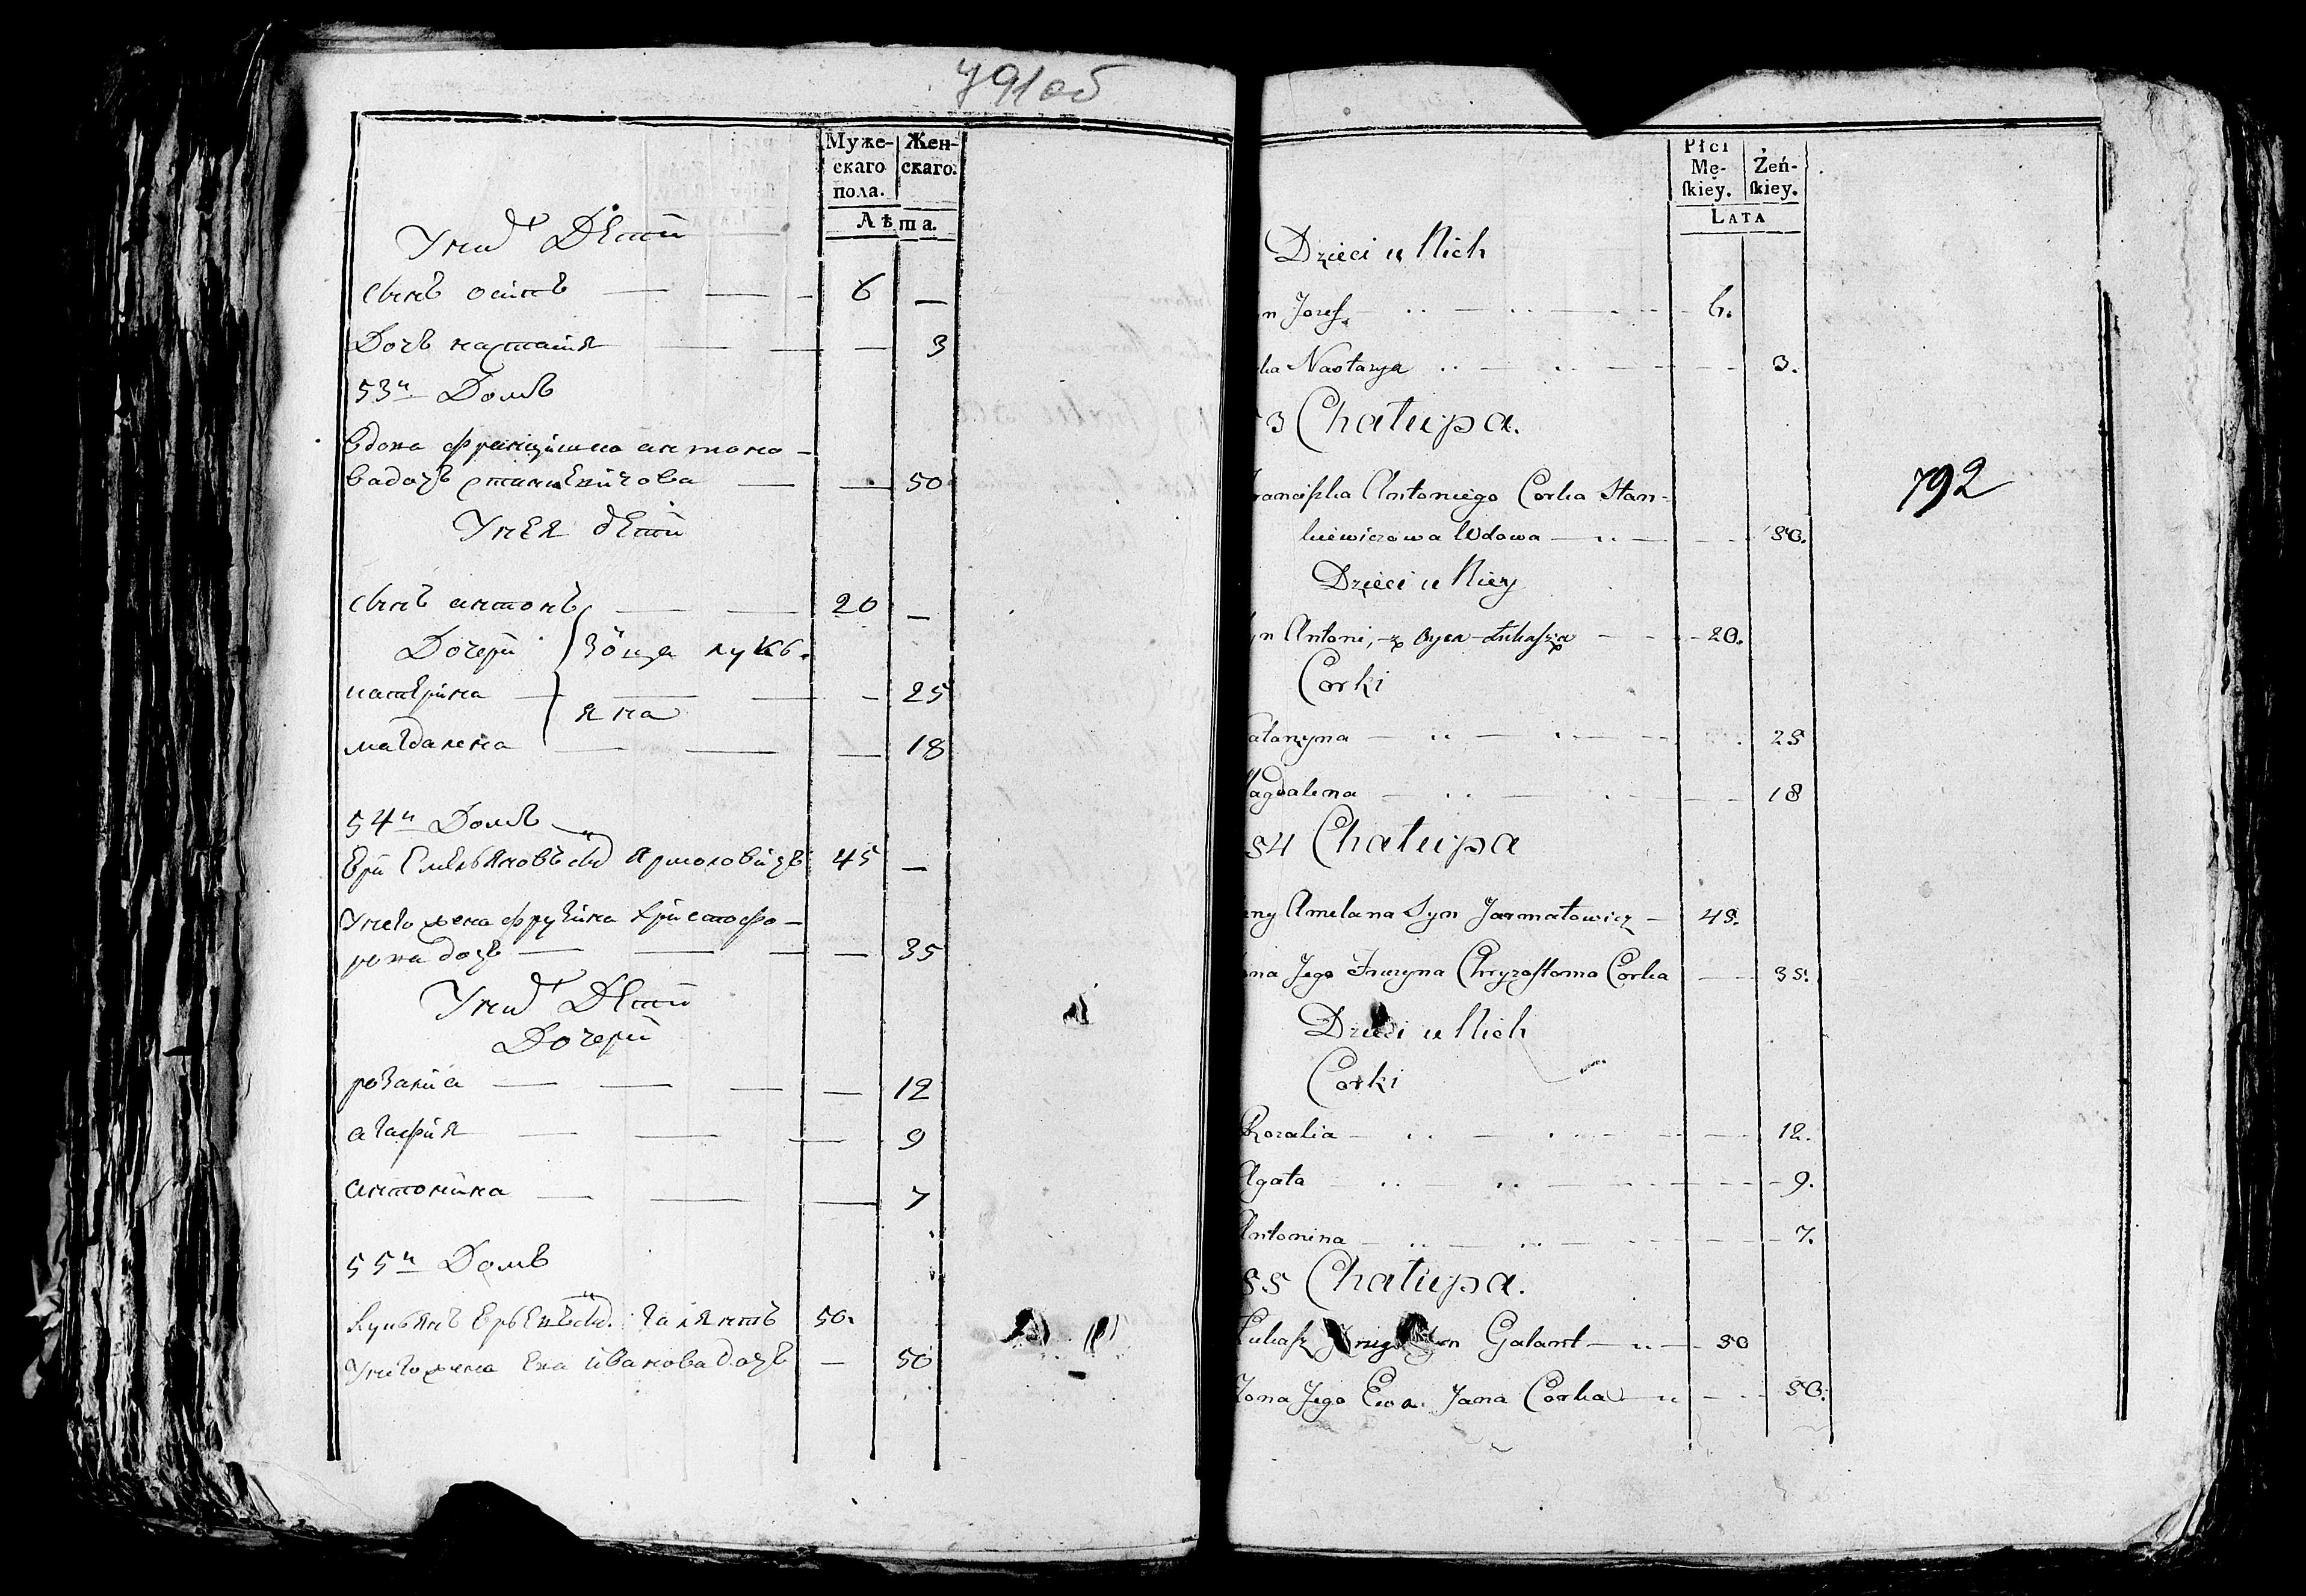 791об
Муже-
скаго
пола.
Жен-
скаго.
Лѣта.
У нихъ Дети
сынъ осипъ 6 —
Дочь настасия — 3
53й Домъ
вдова францишка антоно-
ва дочь станкевичова — 50
У нея дети
сынъ антонъ 20 —
Дочери
катерина — 25
магдалена — 18
54й Домъ
45 —
У него жена фрузина христофо-
рова дочь — 35
У нихъ Дети
Дочери
розалиа — 12
агафия — 9
антонина — 7
55й Домъ
галянтъ 50.
У него жена Ева иванова дочь — 50
Płci
Mę-
ſkiey.
Żeń-
ſkiey.
LATA
Dzieci u Nich
n Jozef 6.
ka Nastazya 3.
3 Chałupa.
ranciſzka Antoniego Corka Stan-
kiewiczowa Wdowa 50.
Dzieci u Niey
yn Antoni, z oyca Łukaſza 20.
Corki
atarzyna 25
Magdalena 18
54 Chałupa
Amelana Syn Jarmałowicz 45.
ona Jego Fruzyna Chryzoſtoma Corka 35.
Dzieci u Nich
Corki
Rozalia 12.
Agata 9.
Antonina 7.
55 Chałupa.
Łukaſz Syn Galant 50
Żona Jego Ewa Jana Corka 50.
792